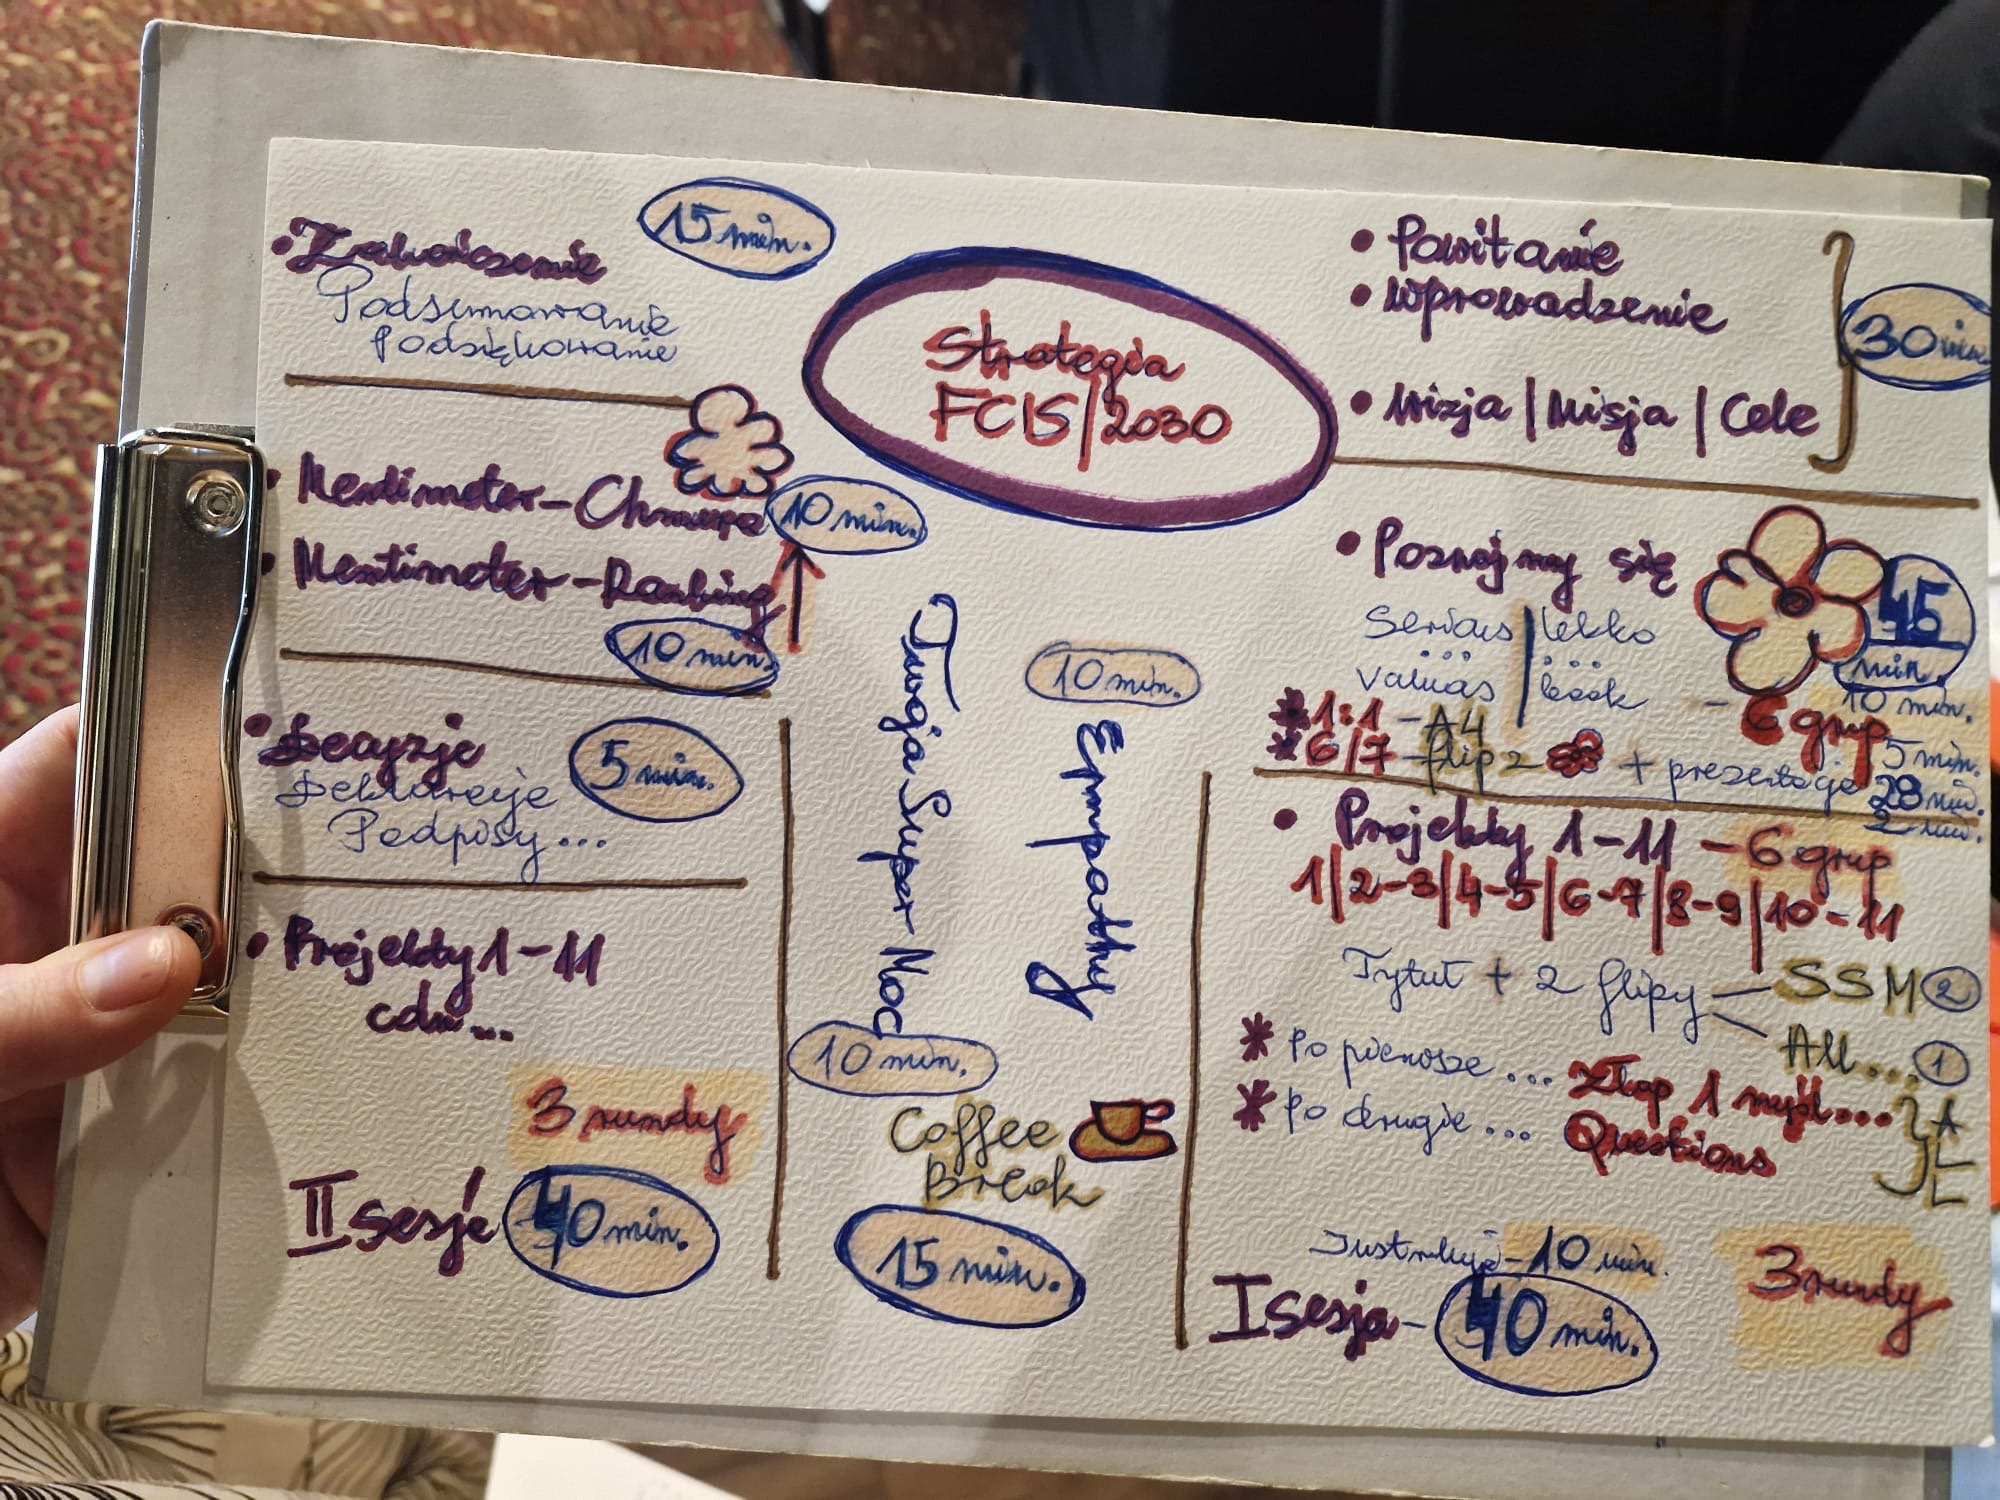 Strategia
FCIS/2030
• Powitanie
• Wprowadzenie
• Wizja | Misja | Cele
30 min
• Poznajmy się
45
min.
Serious | lekko
... | ...
values | look
- 6 grup
10 min.
* 1:1 - A4
5 min.
* 6/7 - flip z + prezentacje
28 min.
2 min.
• Projekty 1-11 - 6 grup
1|2-3|4-5|6-7|8-9|10-11
Tytuł + 2 flipy
SSM 2
All... 1
* Po pierwsze... Złap 1 myśl...
* Po drugie... Questions
A
L
L
Instrukcje - 10 min.
I sesja - 40 min.
3 rundy
10 min.
Empathy
Coffee
Break
15 min.
Twoja Super-Moc
10 min.
• Projekty 1-11
cdn...
3 rundy
II sesje 40 min.
• Decyzje
5 min.
Deklaracje
Podpisy...
• Mentimeter - Chmura
10 min.
• Mentimeter - Ranking
10 min.
• Zakończenie
15 min.
Podsumowanie
Podziękowanie